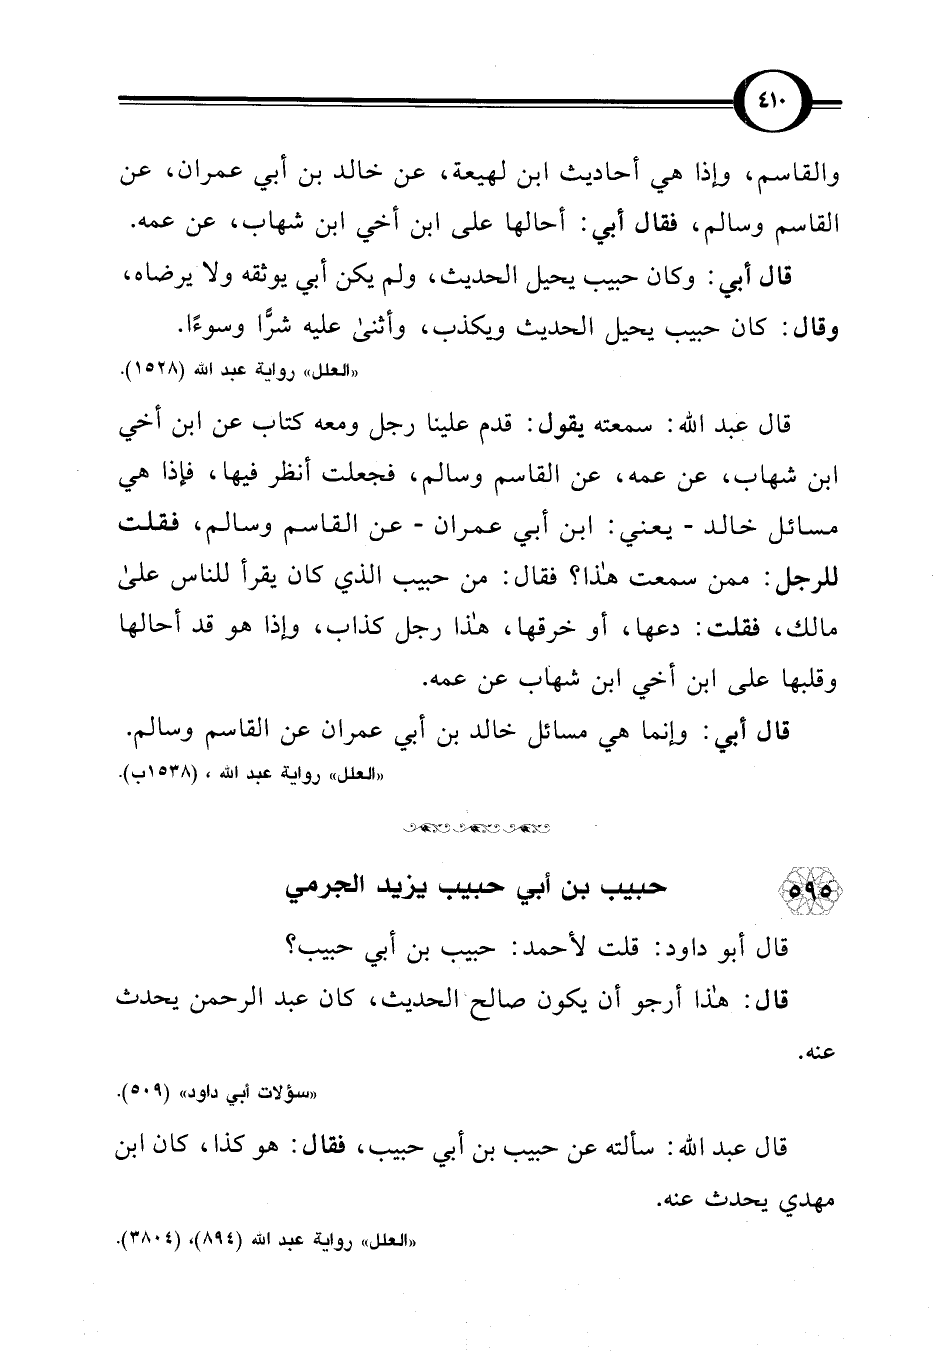 ٤١٠
والقاسم، وإذا هي أحاديث ابن لهيعة، عن خالد بن أبي عمران، عن
القاسم وسالم، فقال أبي: أحالها على ابن أخي ابن شهاب، عن عمه.
قال أبي: وكان حبيب يحيل الحديث، ولم يكن أبي يوثقه ولا يرضاه،
وقال: كان حبيب يحيل الحديث ويكذب، وأثنىٰ عليه شرًّا وسوءًا.
«العلل» رواية عبد الله (١٥٢٨).
قال عبد الله: سمعته يقول: قدم علينا رجل ومعه كتاب عن ابن أخي
ابن شهاب، عن عمه، عن القاسم وسالم، فجعلت أنظر فيها، فإذا هي
مسائل خالد - يعني: ابن أبي عمران - عن القاسم وسالم، فقلت
للرجل: ممن سمعت هٰذا؟ فقال: من حبيب الذي كان يقرأ للناس علىٰ
مالك، فقلت: دعها، أو خرقها، هٰذا رجل كذاب، وإذا هو قد أحالها
وقلبها على ابن أخي ابن شهاب عن عمه.
قال أبي: وإنما هي مسائل خالد بن أبي عمران عن القاسم وسالم.
«العلل» رواية عبد الله ، (١٥٣٨ب).
٥٩٥ حبيب بن أبي حبيب يزيد الجرمي
قال أبو داود: قلت لأحمد: حبيب بن أبي حبيب؟
قال: هٰذا أرجو أن يكون صالح الحديث، كان عبد الرحمن يحدث
عنه.
«سؤلات أبي داود» (٥٠٩).
قال عبد الله: سألته عن حبيب بن أبي حبيب، فقال: هو كذا، كان ابن
مهدي يحدث عنه.
«العلل» رواية عبد الله (٨٩٤)، (٣٨٠٤).